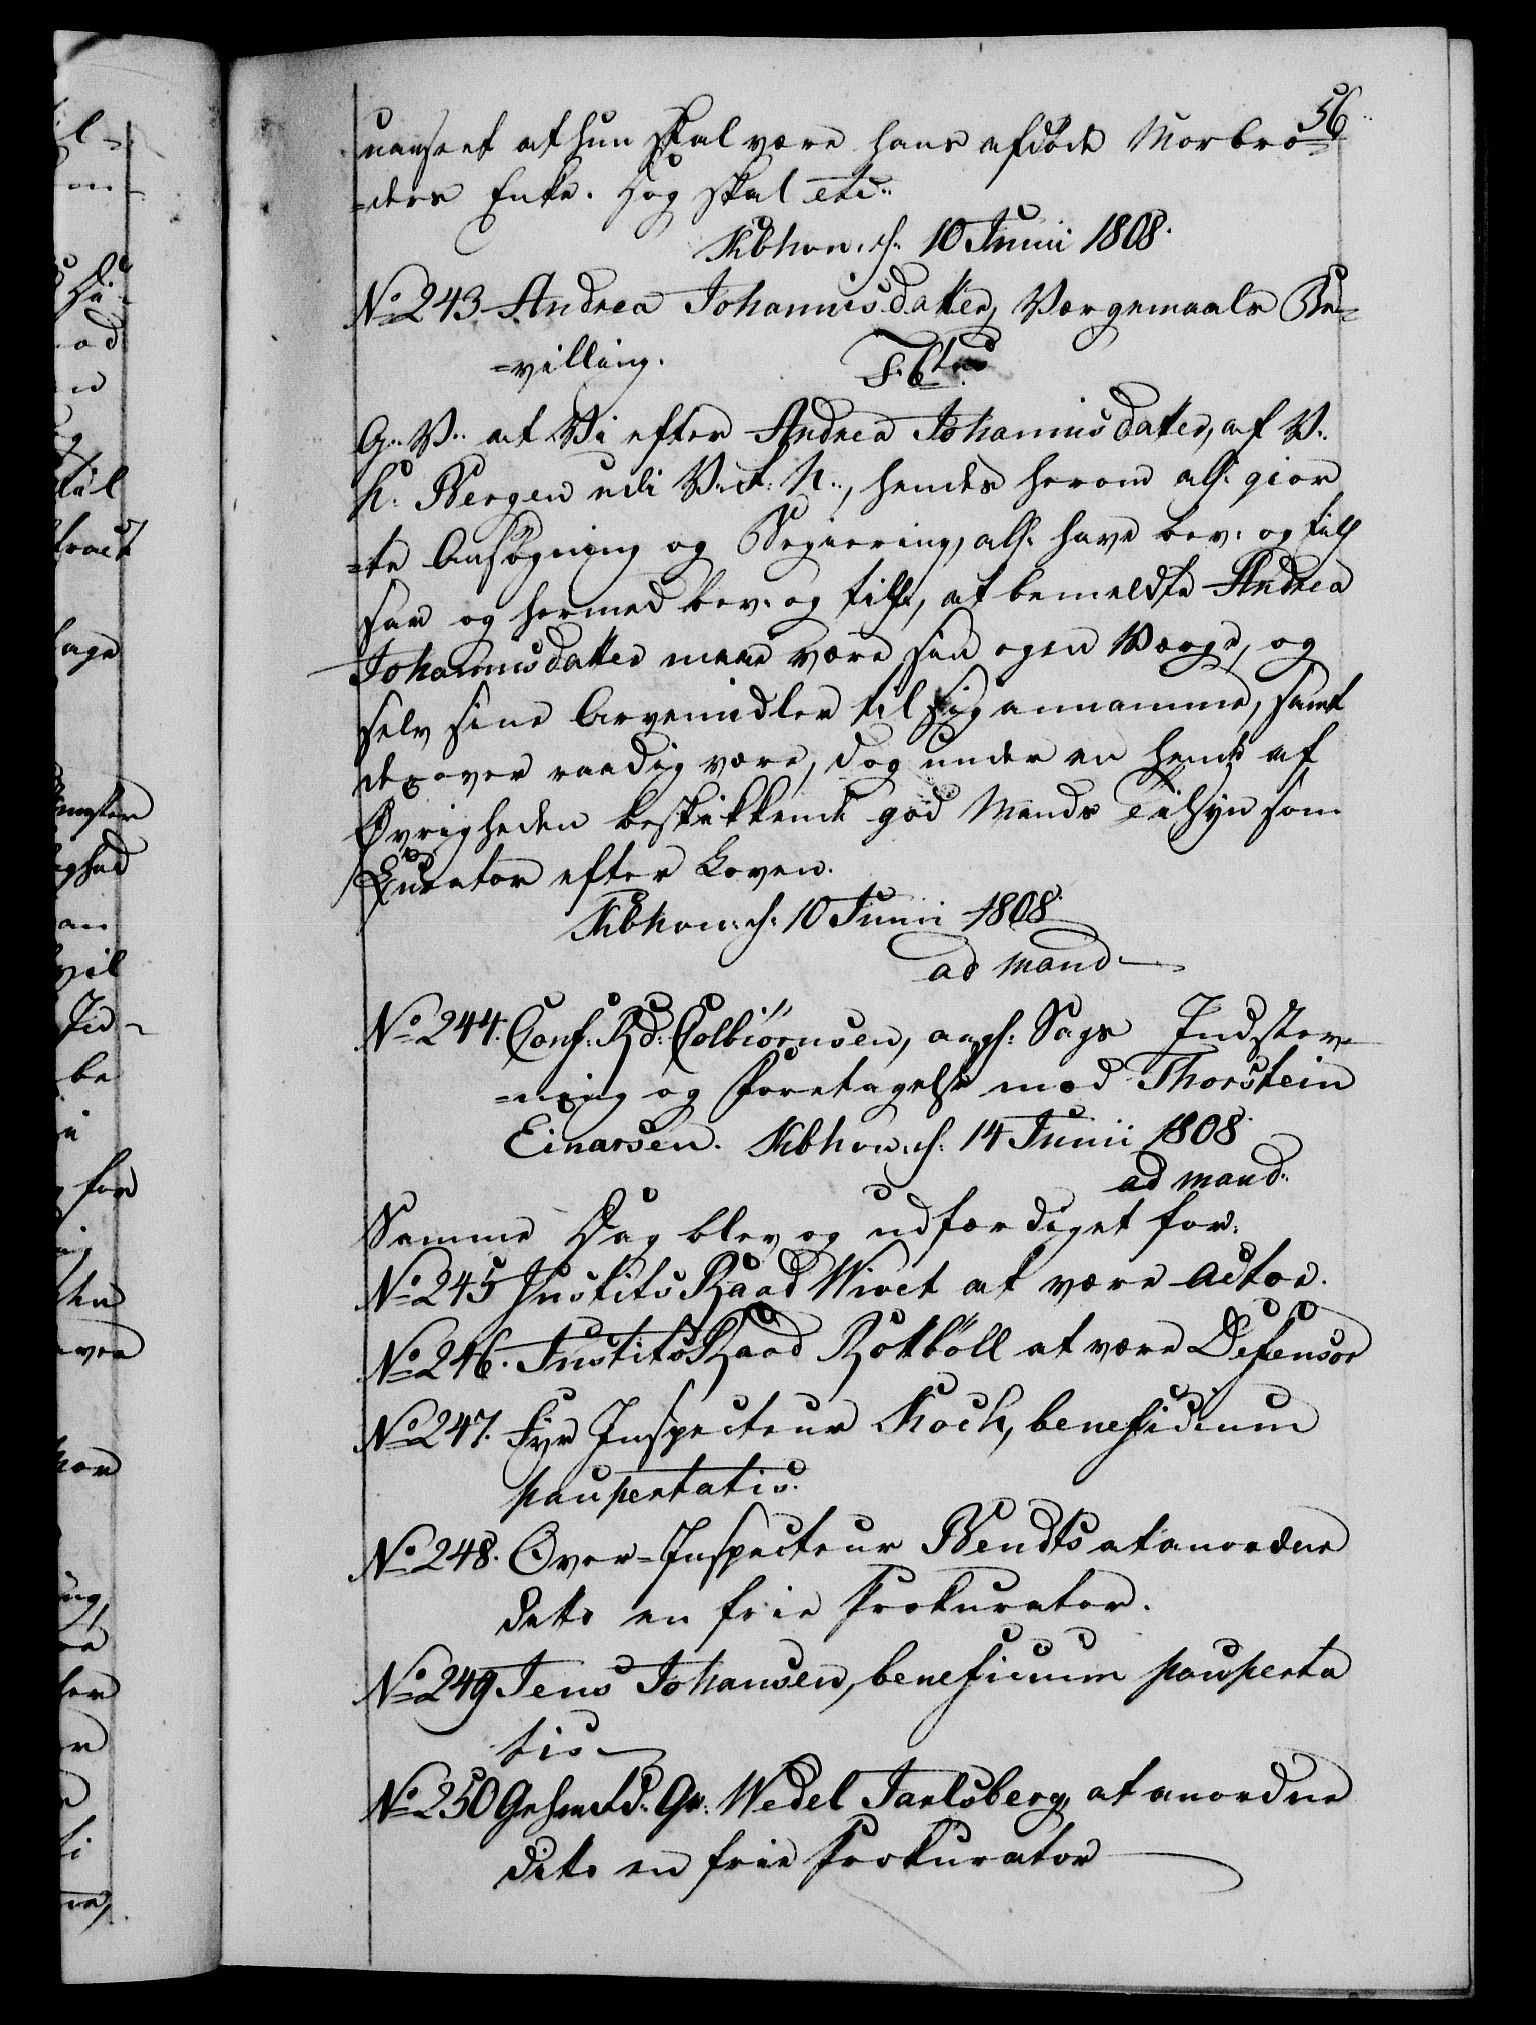 56
uanseet at hun skal være hans afdøde Morbro-
=ders Enke. Dog skal etc:
Kbhvn. d. 10 Junii 1808.
No 243 Andrea Johannisdatter, Værgemaals Be-
=villing.
G: V: at Vi efter Andrea Johannisdatter, af V:
K: Bergen udi V: R: N:, hendes herom all: gior
=te Ansøgning og Begiering, all: have bev: og till
saa og hermed bev: og till:, at bemeldte Andrea
Johannisdatter maae være sin egen Værge, og
selv sine Arvemidler til sig annamme, samt
derover raadig være, dog under en hende af
Øvrigheden beskikkende god Mands Tilsyn som
Curator efter Loven.
Kbhvn: d: 10 Junii 1808
ad mand
No 244. Conf: Rd: Colbiørnsen, angl: Sags Indstev-
=ning og Foretagelse mod Thorstein
Einarsen. Kbhvn: d: 14 Junii 1808
ad mand:
Samme Dag blev og udfærdiget for:
No 245 Justits Raad Wivet at være Actor.
No 246. Justits Raad Rottböll at være Defensor
No 247. Fyr Inspecteur Koch, beneficium
paupertatis.
No 248. Over=Inspecteur Bendts at anordne
dito en frie Prokurator.
No 249 Jens Johansen, beneficium pauperta
tis
No 250 Gehmrd: Gr: Wedel Jarlsberg, at anordne
dito en frie Prokurator